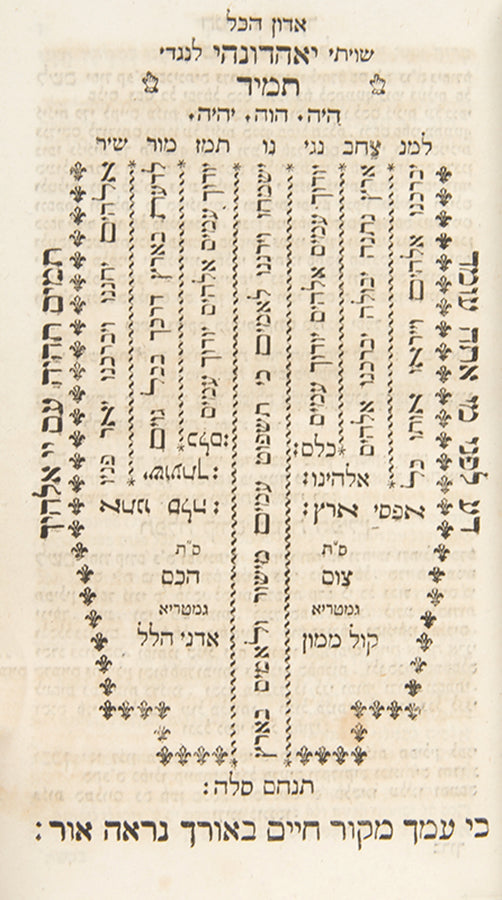 אדון הכל
שויתי יאהדונהי לנגדי
תמיד
היה. הוה. יהיה.
למנ צחב נגי נו תמז מור שיר
דע לפני מי אתה עומד
יברכנו אלהים וייראו אותו כל
אפסי ארץ:
ארץ נתנה יבולה יברכנו אלהים
אלהינו:
יודוך עמים אלהים יודוך עמים
כלם:
ישמחו וירננו לאמים כי תשפוט עמים מישור ולאמים בארץ
תנחם סלה:
יודוך עמים אלהים יודוך עמים
כלם:
לדעת בארץ דרכך בכל גוים
ישועתך:
אלהים יחננו ויברכנו יאר פניו
אתנו סלה:
תמים תהיה עם יי אלהיך
ס"ת
צום
גמטריא
קול ממון
ס"ת
הכם
גמטריא
אדני הלל
כי עמך מקור חיים באורך נראה אור: